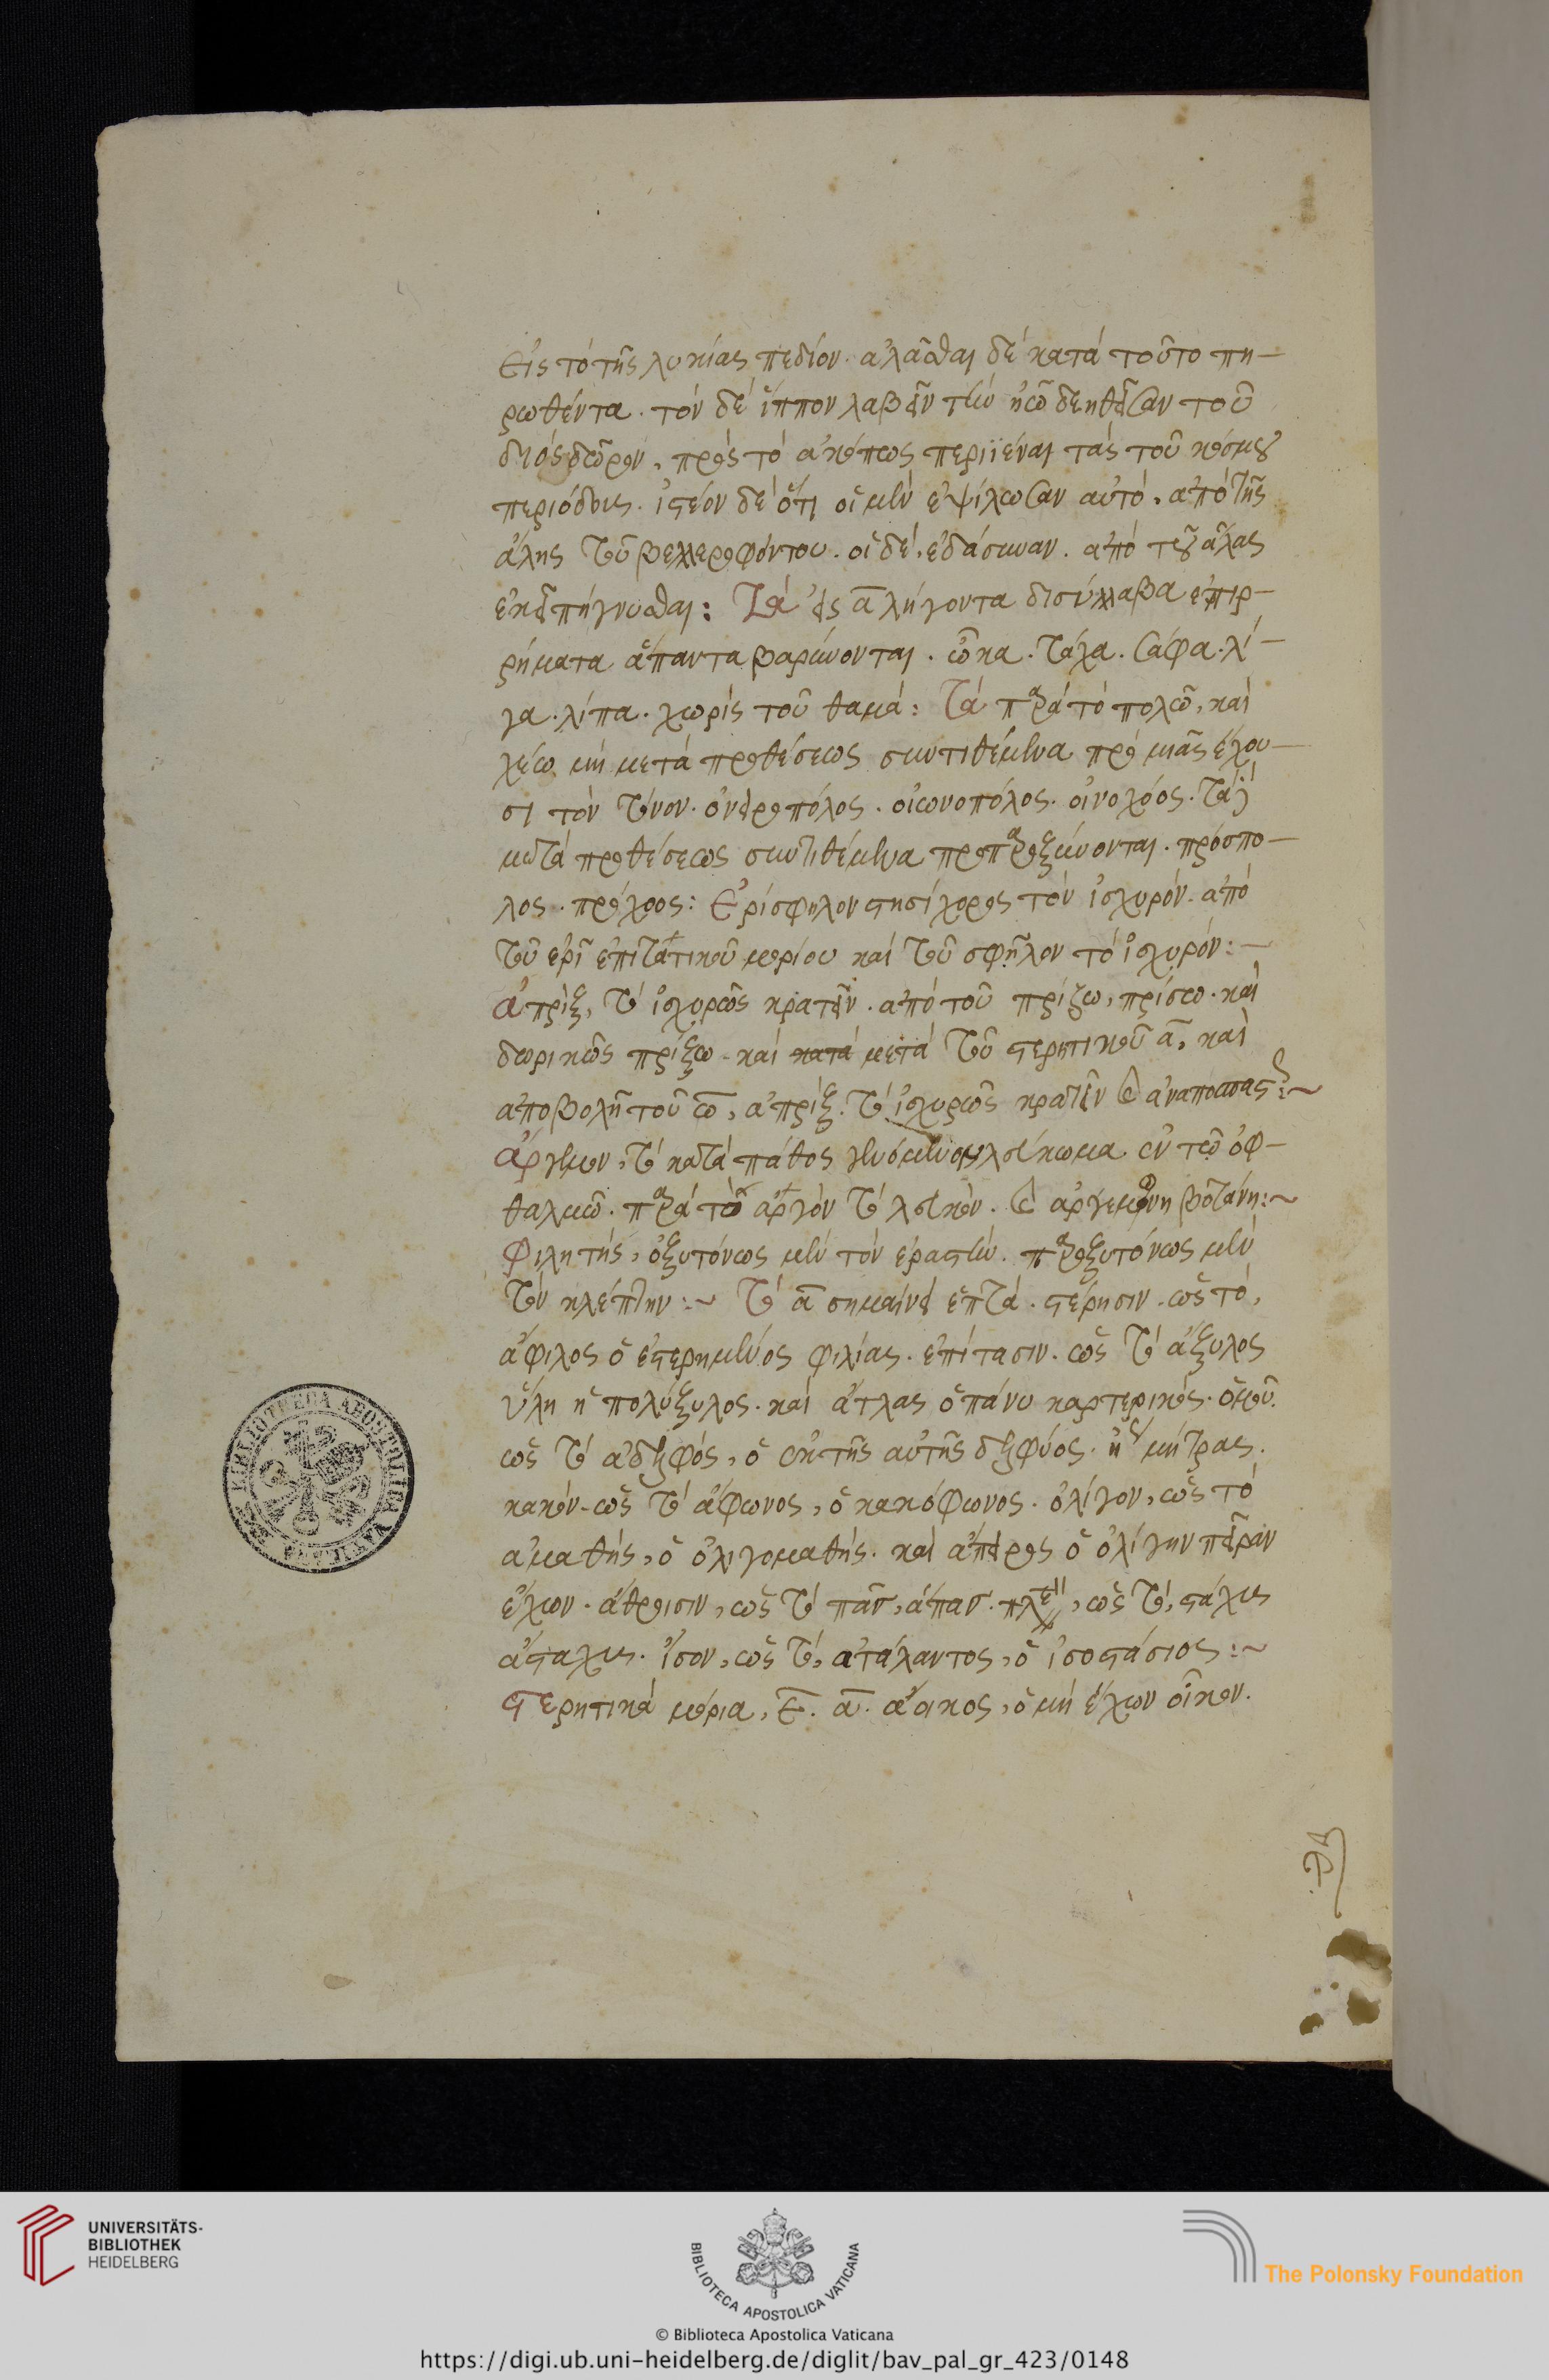 Εἰς τὸ τῆς λυκίας πεδίον. ἀλᾶσθαι δὲ κατὰ τοῦτο πη-
ρωθέντα. τὸν δὲ ἵππον λαβεῖν τὴν ἠῶ δεηθεῖσαν τοῦ
διὸς δῶρον, πρὸς τὸ ἀκόπως περιϊέναι τὰς τοῦ κόσμου
περιόδους. ἰστέον δὲ ὅτι οἱ μὲν ἐψίλωσαν αὐτό, ἀπὸ τῆς
ἄλης τοῦ βελλεροφόντου. οἱ δὲ, ἐδάσυναν. ἀπὸ τοῦ ἅλας
ἐκεῖ πήγνυσθαι: Τὰ εἰς α λήγοντα δισύλλαβα ἐπιρ-
ρήματα ἅπαντα βαρύνονται. ὦκα. τάχα. σάφα. λί-
γα. λίπα. χωρὶς τοῦ θαμά: Τὰ παρὰ τὸ πολῶ, καὶ
χέω μὴ μετὰ προθέσεως συντιθέμενα πρὸ μιᾶς ἔχου-
σι τὸν τόνον. ὀνειροπόλος. οἰωνοπόλος. οἰνοχόος. τὰ δὲ
μετὰ προθέσεως συντιθέμενα προπαροξύνονται. πρόσπο-
λος. πρόχοος: Ἐρίσφηλον στησίχορος τὸν ἰσχυρόν. ἀπὸ
τοῦ ἐρι ἐπιτατικοῦ μορίου καὶ τοῦ σφῆλον τὸ ἰσχυρόν: -
ἀπρίξ, τὸ ἰσχυρῶς κρατεῖν. ἀπὸ τοῦ πρίζω, πρίσω. καὶ
δωρικῶς πρίξω. καὶ κατὰ μετὰ τοῦ στερητικοῦ α, καὶ
ἀποβολῇ τοῦ ω, ἀπρίξ. τὸ ἰσχυρῶς κρατεῖν καὶ :~
ἄργεμον, τὸ κατὰ πάθος γενόμενον λεύκωμα ἐν τῷ ὀφ-
θαλμῷ. παρὰ τὸ ἀργὸν τὸ λευκόν. καὶ ἀργεμώνη βοτάνη:~
Φιλητής, ὀξυτόνως μὲν τὸν ἐραστήν. παροξυτόνως μὲν
τὸν κλέπτην:~ Τὸ α σημαίνει ἑπτά. στέρησιν. ὡς τὸ,
ἄφιλος ὁ ἐστερημένος φιλίας. ἐπίτασιν. ὡς τὸ ἄξυλος
ὕλη ἡ πολύξυλος. καὶ ἄτλας ὁ πάνυ καρτερικός. ὁμοῦ.
ὡς τὸ ἀδελφός, ὁ ἐκ τῆς αὐτῆς δελφύος. ἤτοι μήτρας.
κακόν. ὡς τὸ ἄφωνος, ὁ κακόφωνος. ὀλίγον, ὡς τὸ
ἀμαθής, ὁ ὀλιγομαθής. καὶ ἄπειρος ὁ ὀλίγην πεῖραν
ἔχων. ἄθροισιν, ὡς τὸ πᾶν, ἅπαν. , ὡς τὸ, στάχυς
ἄσταχυς. ἴσον, ὡς τὸ, ἀτάλαντος, ὁ ἰσοστάσιος:~
Στερητικὰ μόρια, ε. α. ἄοικος, ὁ μὴ ἔχων οἶκον.
BIBLIOTHECA APOSTOLICA VATICANA
UNIVERSITÄTS-
BIBLIOTHEK
HEIDELBERG
BIBLIOTECA APOSTOLICA VATICANA
The Polonsky Foundation
© Biblioteca Apostolica Vaticana
https://digi.ub.uni-heidelberg.de/diglit/bav_pal_gr_423/0148